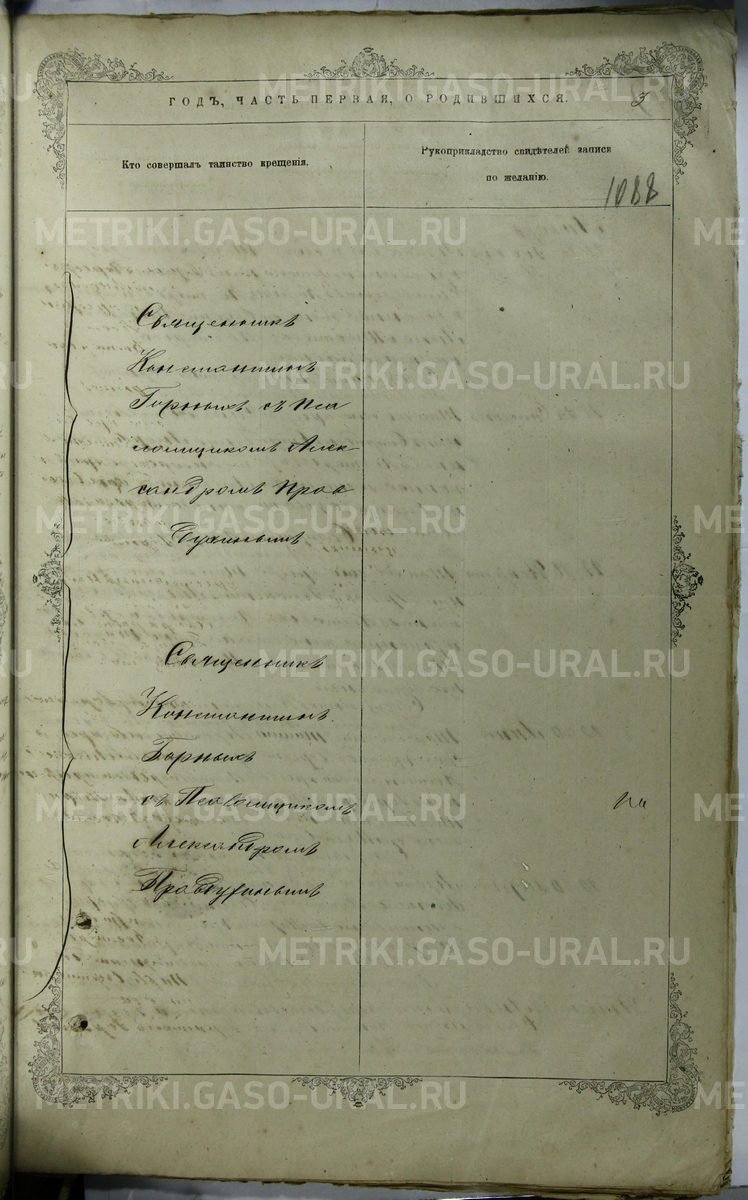 ГОДЪ, ЧАСТЬ ПЕРВАЯ, О РОДИВШИХСЯ.
3
Кто совершалъ таинство крещенія.
Рукоприкладство свидѣтелей записи
по желанію.
1088
Священникъ
Константинъ
Горныхъ съ Пса
ломщикомъ Алек-
сандромъ Прав
духинымъ
Священникъ
Константинъ
Горныхъ
съ Псаломщикомъ
Александромъ
Правдухинымъ
METRIKI.GASO-URAL.RU